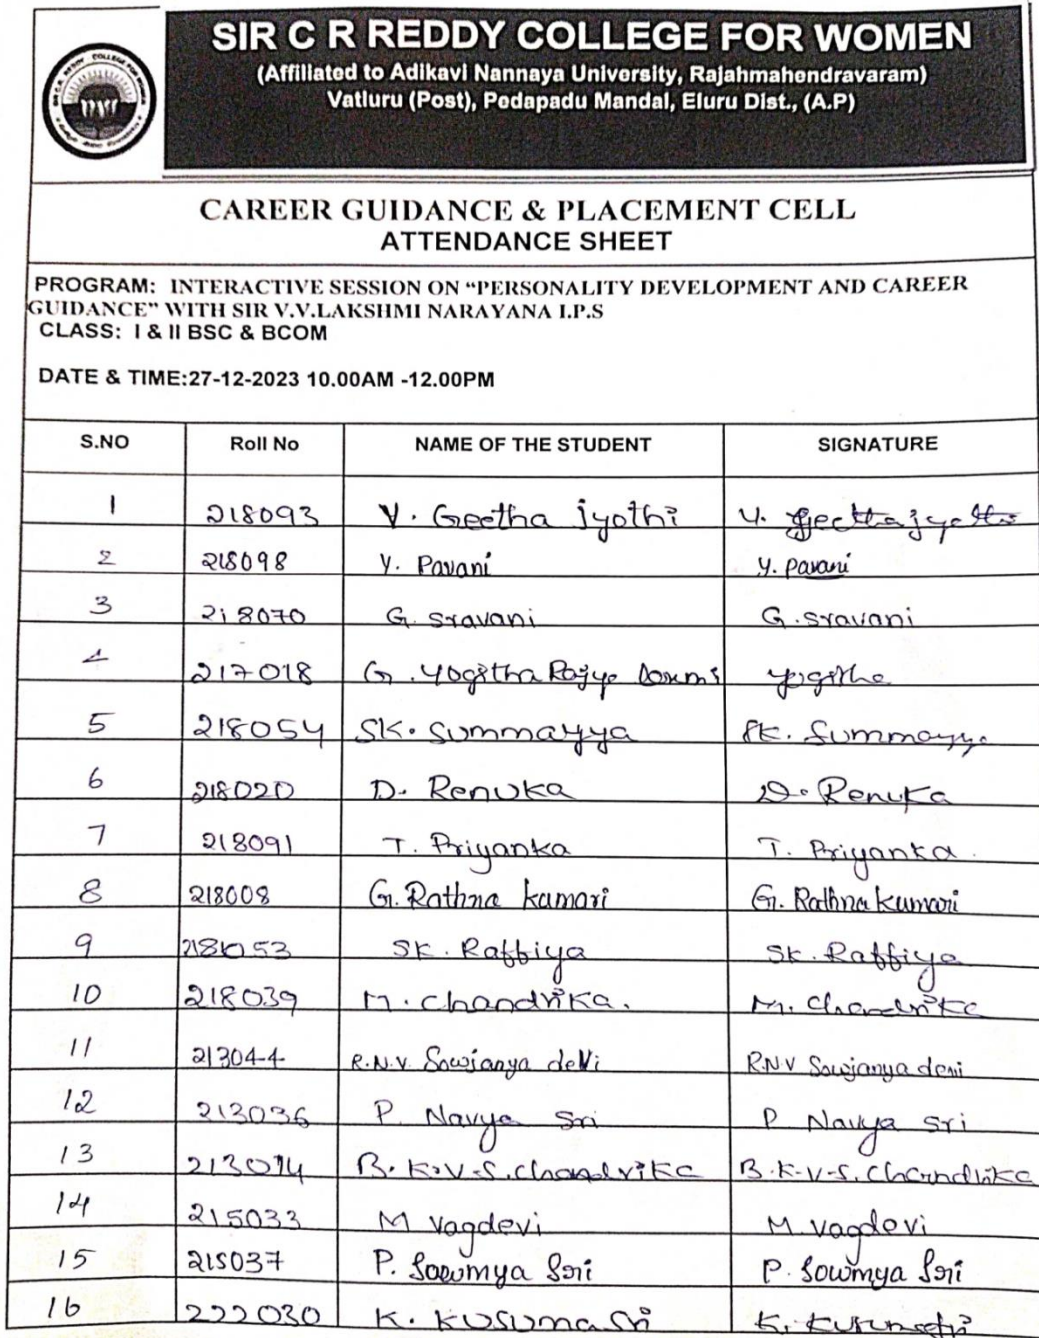 SIR C R REDDY COLLEGE FOR WOMEN
(Affiliated to Adikavi Nannaya University, Rajahmahendravaram)
Vatluru (Post), Pedapadu Mandal, Eluru Dist., (A.P)
CAREER GUIDANCE & PLACEMENT CELL
ATTENDANCE SHEET
PROGRAM: INTERACTIVE SESSION ON “PERSONALITY DEVELOPMENT AND CAREER
GUIDANCE” WITH SIR V.V.LAKSHMI NARAYANA I.P.S
CLASS: I & II BSC & BCOM
DATE & TIME:27-12-2023 10.00AM -12.00PM
S.NO Roll No NAME OF THE STUDENT SIGNATURE
1 218093 V. Geetha jyothi V. Geetha jyothi
2 218098 Y. Pavani Y. Pavani
3 218070 G. sravani G. sravani
4 217018 G. Yogitha yogitha
5 218054 SK. Summayya SK. Summayya
6 218020 D. Renuka D. Renuka
7 218091 T. Priyanka T. Priyanka
8 218008 G. Rathna kumari G. Rathna kumari
9 218053 SK. Raffiya SK. Raffiya
10 218039 M. Chandrika. M. Chandrika
11 213044 R.N.V. Sowjanya devi R.N.V Sowjanya devi
12 213036 P. Navya Sri P Navya Sri
13 213014 B. K.V.S. Chandrika B.K.V.S. Chandrika
14 215033 M vagdevi M. vagdevi
15 215037 P. Sowmya Sri P. Sowmya Sri
16 222030 K. KUSUMA Sri K.